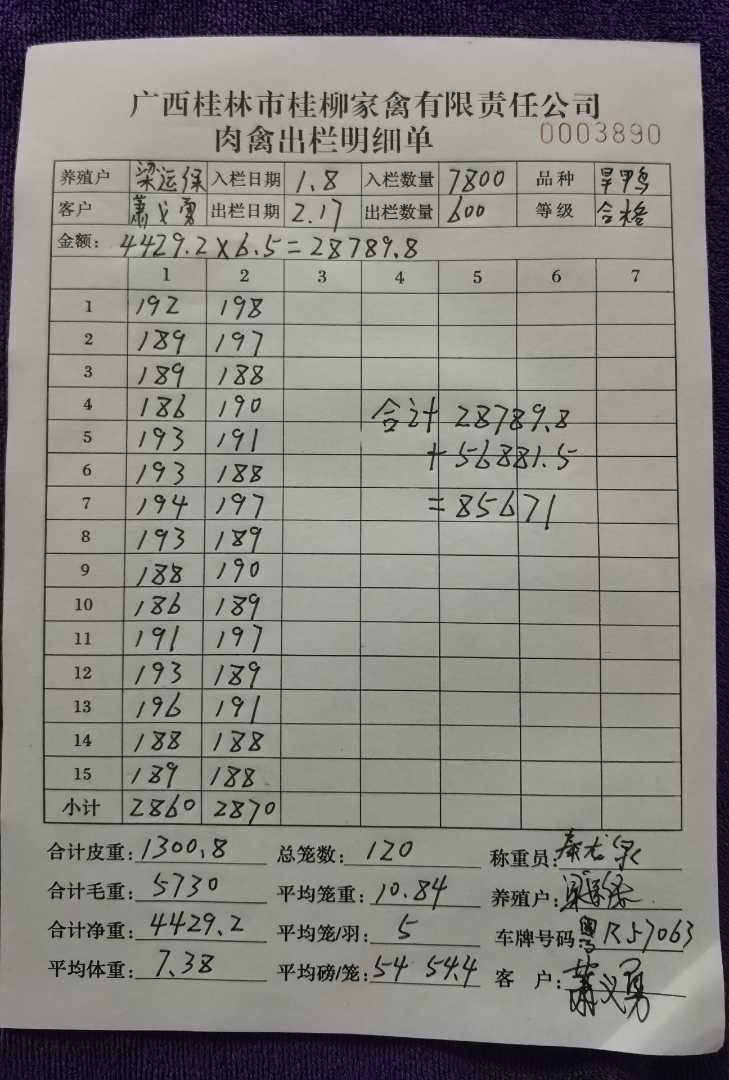 广西桂林市桂柳家禽有限责任公司
肉禽出栏明细单 0003890
养殖户 梁运保 入栏日期 1.8 入栏数量 7800 品种 旱鸭
客户 萧义勇 出栏日期 2.17 出栏数量 600 等级 合格
金额: 4429.2×6.5=28789.8
1 2 3 4 5 6 7
1 192 198
2 189 197
3 189 188
4 186 190 合计 28789.8
5 193 191 +56881.5
6 193 188
7 194 197 =85671
8 193 189
9 188 190
10 186 189
11 191 197
12 193 189
13 196 191
14 188 188
15 189 188
小计 2860 2870
合计皮重: 1300.8 总笼数: 120 称重员:
合计毛重: 5730 平均笼重: 10.84 养殖户:
合计净重: 4429.2 平均笼/羽: 5 车牌号码: 粤R57063
平均体重: 7.38 平均磅/笼: 54 54.4 客 户: 萧义勇